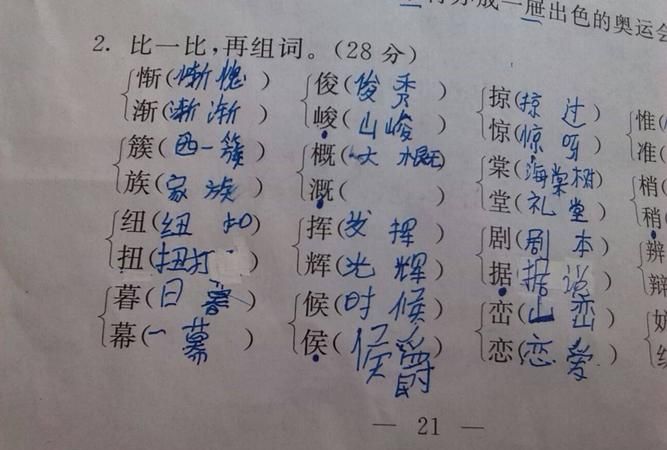 一届出色的奥运会
2. 比一比,再组词。(28分)
惭(惭愧) 俊(俊秀) 掠(掠过) 惟(
渐(渐渐) 峻(山峻) 惊(惊呀) 准(
簇(一簇) 概(大概) 棠(海棠树) 梢(
族(家族) 溉( ) 堂(礼堂) 稍(
纽(纽扣) 挥(发挥) 剧(剧本) 辨
扭(扭打) 辉(光辉) 据(据说) 辩
暮(日暮) 候(时候) 峦(山峦)
幕(一幕) 侯(侯爵) 恋(恋爱)
— 21 —